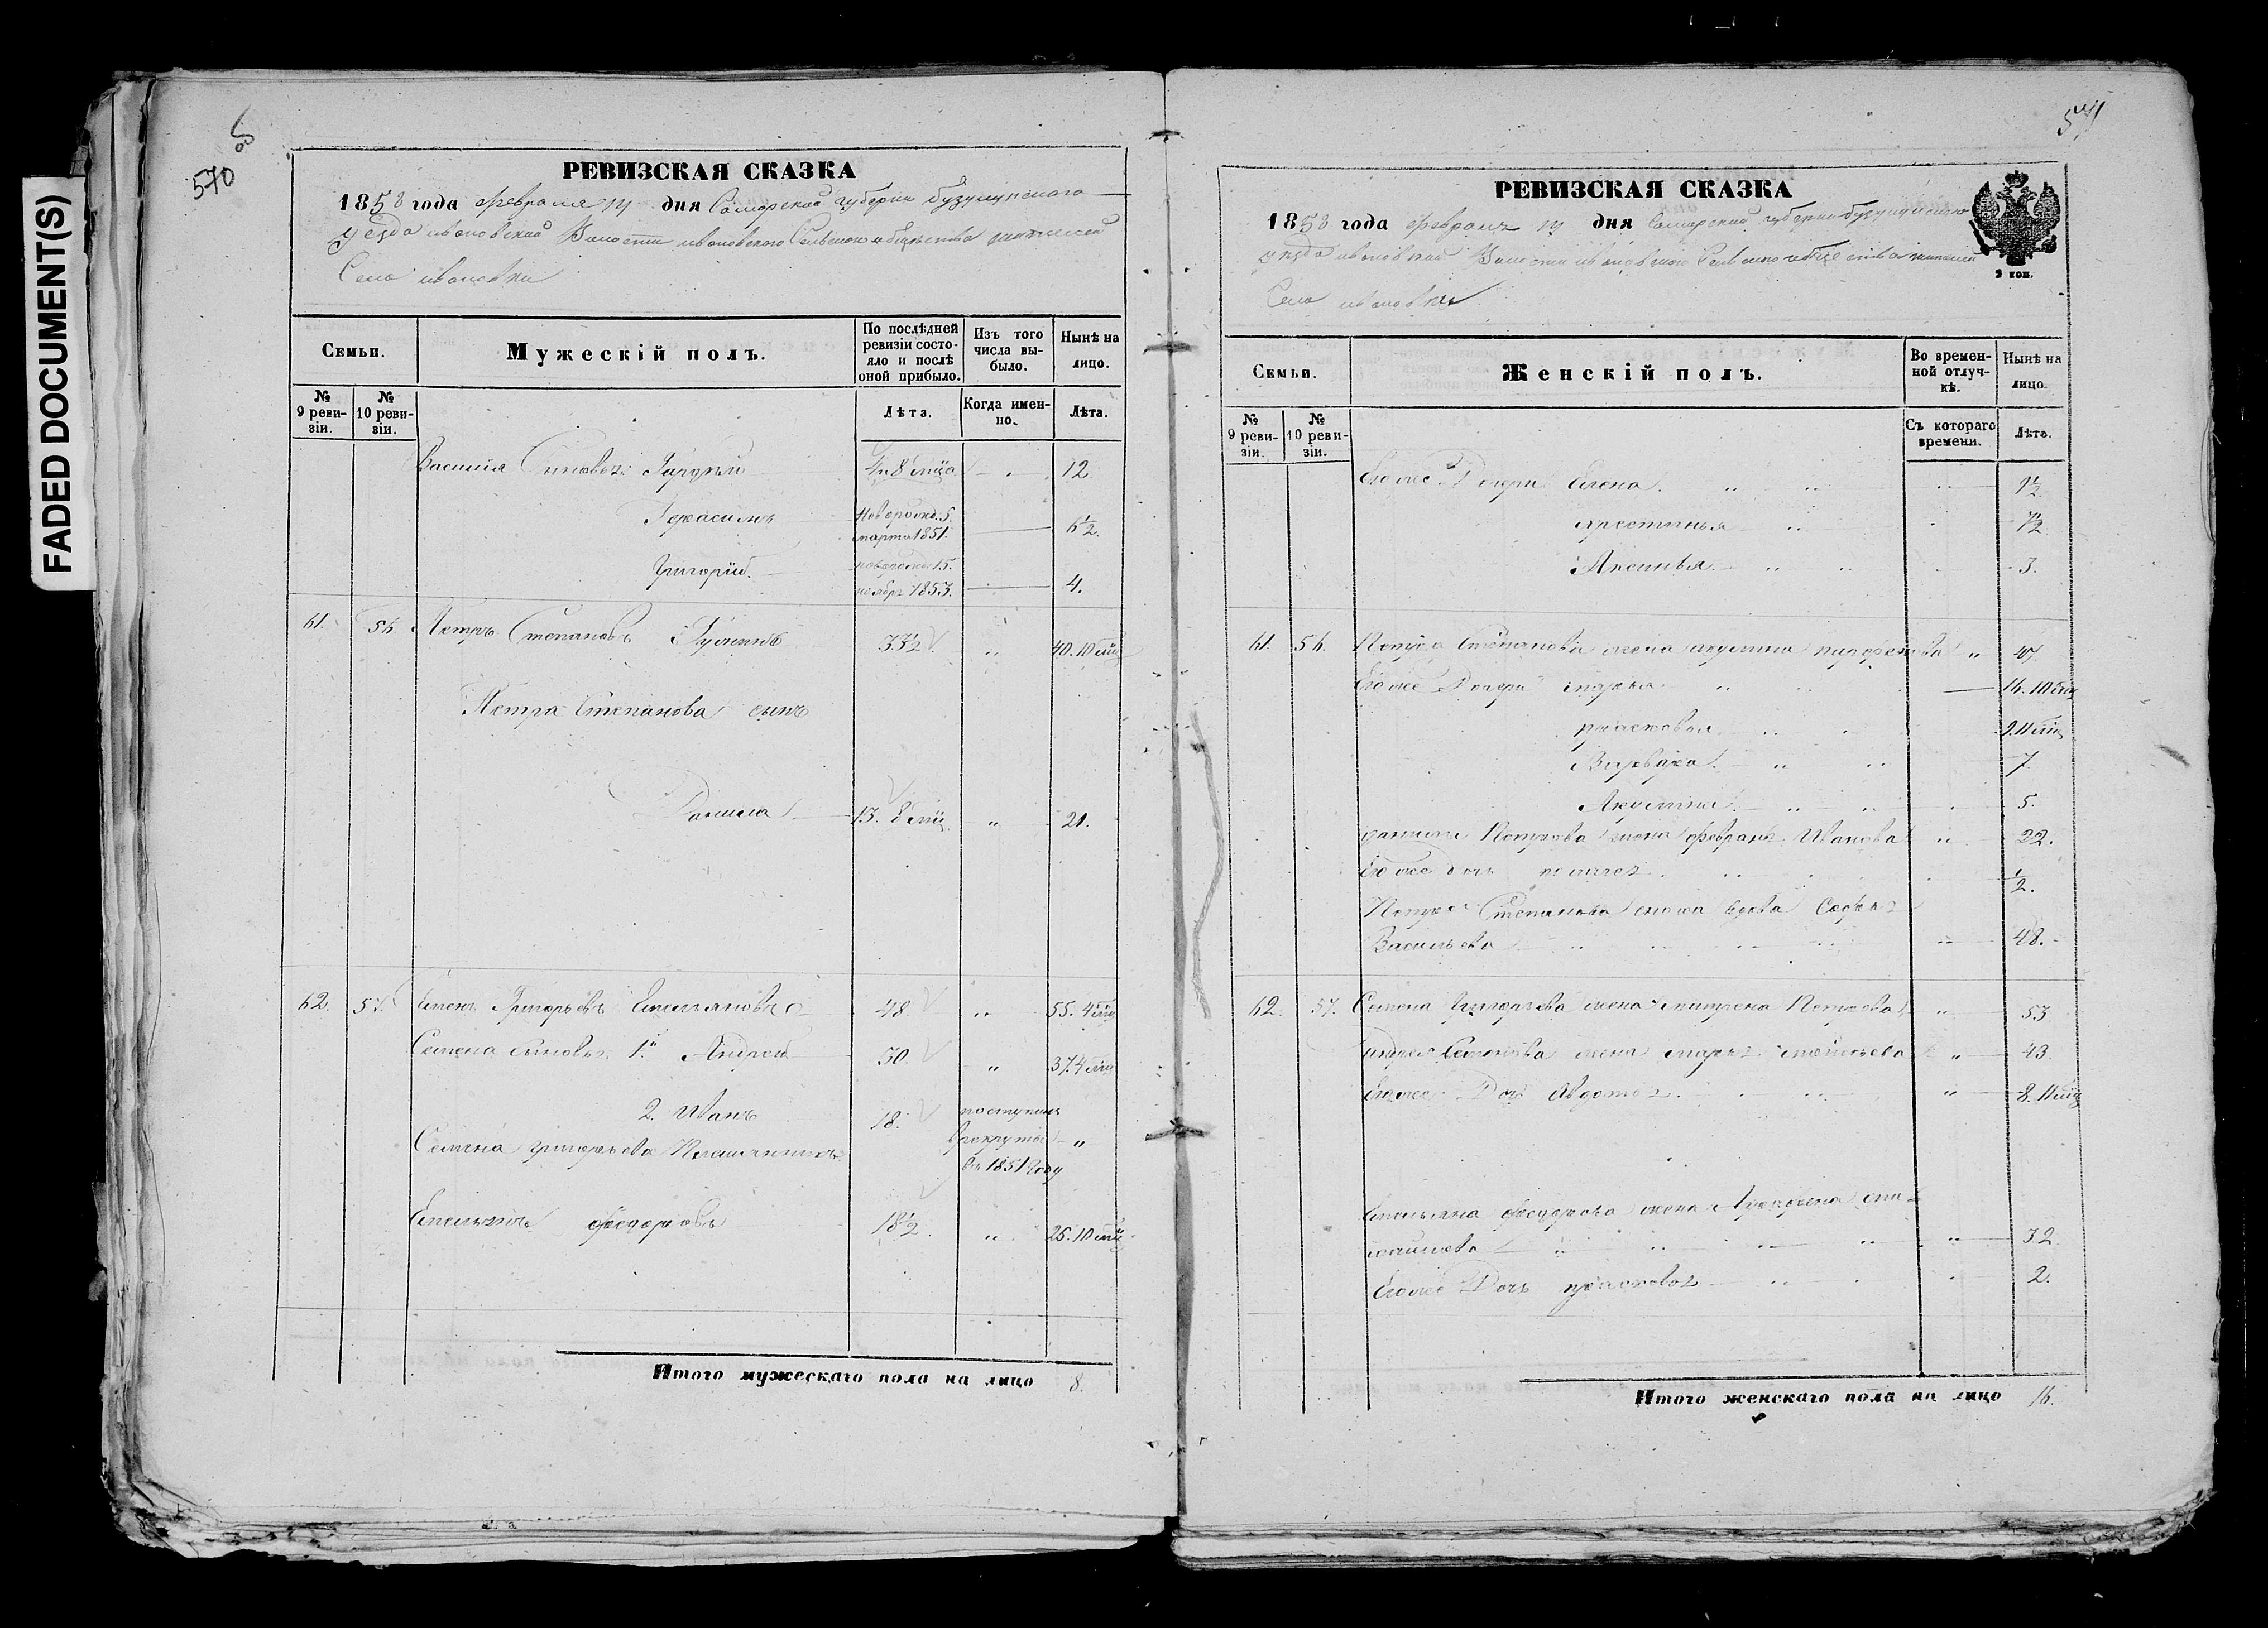 FADED DOCUMENT(S)
570
РЕВИЗСКАЯ СКАЗКА
1858 года февраля 14 дня Самарской губернии бузулукского
уезда ивановской Волости ивановского Сельского общества
Села ивановки
Семьи.
Мужескій полъ.
По послѣдней ревизіи состо-
яло и послѣ
оной прибыло.
Изъ того
числа вы-
было.
Нынѣ на
лицо.
№
9 реви-
зіи.
№
10 реви-
зіи.
Лѣта.
Когда имен-
но.
Лѣта.
Василия Сыновья: 4 и 8 мца 12
Герасимъ новорожд. 5. марта 1851. 6 1/2.
Григорій. новорожд. 15. ноября 1853. 4.
61. 56 Петръ Степановъ 33 1/2 „ 40. 10 мц
Петра Степанова сынъ
Данила 13. 8 мц. „ 21.
62. 57. Семенъ Григорьевъ Емельяновъ 48. „ 55. 4 мц
Семена сыновья 1й Андрей 30. „ 37. 4 мц
2. Иванъ 18. поступилъ
в рекруты „
въ 1851 году
Семена григорьева Племянникъ
Емельянъ федоровъ 18 1/2. „ 26. 10 мц
Итого мужескаго пола на лицо 8.
571
РЕВИЗСКАЯ СКАЗКА
1858 года февраля 14 дня Самарской губернии бузулукского
уезда ивановской Волости ивановского Сельского общества
Села ивановки
2 коп.
Семьи.
Женскій полъ.
Во времен-
ной отлуч-
кѣ.
Нынѣ на
лицо.
№
9 реви-
зіи.
№
10 реви-
зіи.
Съ котораго
времени.
Лѣта.
Егоже Дочери Елена.
Аксинья 3.
61. 56. Петра Степанова жена акулина парфенова „ 47
Егоже Дочери марья 16. 10 мц
прасковья 9. 11 мц
Варвара. 7
Акулина. 5.
данилы Петрова жена Иванова „ 22.
Егоже дочь 1/2.
Петра Степанова сноха вдова Софья
Васильева 48.
62. 57. Семена Григорьева жена матрена Петрова „ 53
андрея Семенова жена марья „ 43.
Егоже Дочь Авдотья „ 8. 11 мц
Емельяна федорова жена
„ 32
Егоже Дочь прасковья 2.
Итого женскаго пола на лицо 16.